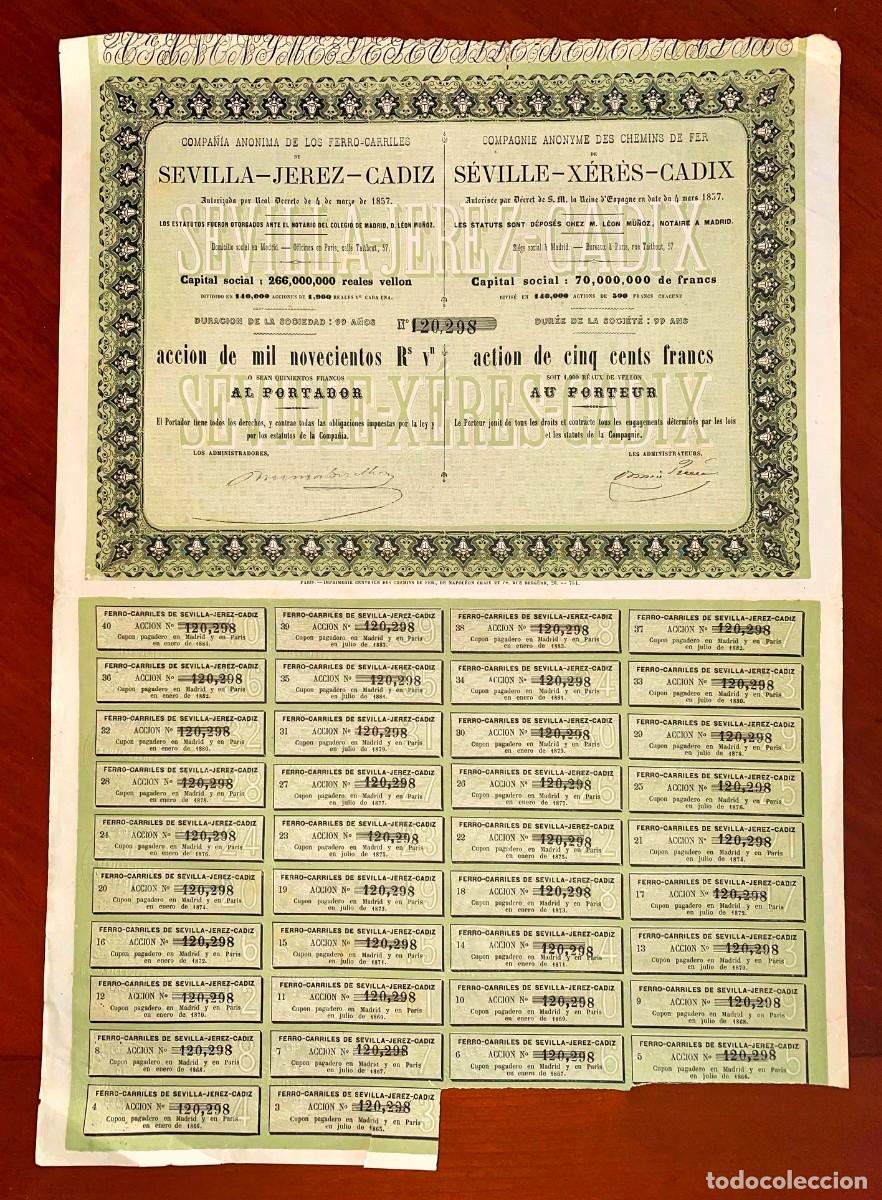 COMPAÑIA ANONIMA DE LOS FERRO-CARRILES
DE
SEVILLA–JEREZ–CADIZ
Autorizada por Real Decreto de 4 de marzo de 1857.
LOS ESTATUTOS FUERON OTORGADOS ANTE EL NOTARIO DEL COLEGIO DE MADRID, D. LÉON MUÑOZ.
Domicilio social en Madrid. — Oficinas en Paris, calle Taitbout, 57.
Capital social : 266,000,000 reales vellon
DIVIDIDO EN 140,000 ACCIONES DE 1,900 REALES Vn CADA UNA.
DURACION DE LA SOCIEDAD : 99 AÑOS
COMPAGNIE ANONYME DES CHEMINS DE FER
DE
SÉVILLE–XÉRÈS–CADIX
Autorisée par Décret de S. M. la Reine d'Espagne en date du 4 mars 1857.
LES STATUTS SONT DÉPOSÉS CHEZ M. LÉON MÜÑOZ, NOTAIRE A MADRID.
Siége social à Madrid. — Bureaux à Paris, rue Taitbout, 57.
Capital social : 70,000,000 de francs
DIVISÉ EN 140,000 ACTIONS DE 500 FRANCS CHACUNE
DURÉE DE LA SOCIÉTÉ : 99 ANS
SEVILLA JEREZ-CADIX
No 120,298
accion de mil novecientos Rs vn
O SEAN QUINIENTOS FRANCOS
AL PORTADOR
El Portador tiene todos los derechos, y contrae todas las obligaciones impuestas por la ley y
por los estatutos de la Compañía.
LOS ADMINISTRADORES,
action de cinq cents francs
SOIT 1,900 RÉAUX DE VELLON
AU PORTEUR
Le Porteur jouit de tous les droits et contracte tous les engagements déterminés par les lois
et les statuts de la Compagnie.
LES ADMINISTRATEURS,
SÉVILLE-XÉRÈS-CADIX
PARIS. — IMPRIMERIE CENTRALE DES CHEMINS DE FER, DE NAPOLÉON CHAIX ET Cie, RUE BERGÈRE, 20. — 754.
FERRO-CARRILES DE SEVILLA-JEREZ-CADIZ
40 ACCION No 120,298
Cupon pagadero en Madrid y en Paris
en enero de 1884.
FERRO-CARRILES DE SEVILLA-JEREZ-CADIZ
39 ACCION No 120,298
Cupon pagadero en Madrid y en Paris
en julio de 1883.
FERRO-CARRILES DE SEVILLA-JEREZ-CADIZ
38 ACCION No 120,298
Cupon pagadero en Madrid y en Paris
en enero de 1883.
FERRO-CARRILES DE SEVILLA-JEREZ-CADIZ
37 ACCION No 120,298
Cupon pagadero en Madrid y en Paris
en julio de 1882.
FERRO-CARRILES DE SEVILLA-JEREZ-CADIZ
36 ACCION No 120,298
Cupon pagadero en Madrid y en Paris
en enero de 1882.
FERRO-CARRILES DE SEVILLA-JEREZ-CADIZ
35 ACCION No 120,298
Cupon pagadero en Madrid y en Paris
en julio de 1881.
FERRO-CARRILES DE SEVILLA-JEREZ-CADIZ
34 ACCION No 120,298
Cupon pagadero en Madrid y en Paris
en enero de 1881.
FERRO-CARRILES DE SEVILLA-JEREZ-CADIZ
33 ACCION No 120,298
Cupon pagadero en Madrid y en Paris
en julio de 1880.
FERRO-CARRILES DE SEVILLA-JEREZ-CADIZ
32 ACCION No 120,298
Cupon pagadero en Madrid y en Paris
en enero de 1880.
FERRO-CARRILES DE SEVILLA-JEREZ-CADIZ
31 ACCION No 120,298
Cupon pagadero en Madrid y en Paris
en julio de 1879.
FERRO-CARRILES DE SEVILLA-JEREZ-CADIZ
30 ACCION No 120,298
Cupon pagadero en Madrid y en Paris
en enero de 1879.
FERRO-CARRILES DE SEVILLA-JEREZ-CADIZ
29 ACCION No 120,298
Cupon pagadero en Madrid y en Paris
en julio de 1878.
FERRO-CARRILES DE SEVILLA-JEREZ-CADIZ
28 ACCION No 120,298
Cupon pagadero en Madrid y en Paris
en enero de 1878.
FERRO-CARRILES DE SEVILLA-JEREZ-CADIZ
27 ACCION No 120,298
Cupon pagadero en Madrid y en Paris
en julio de 1877.
FERRO-CARRILES DE SEVILLA-JEREZ-CADIZ
26 ACCION No 120,298
Cupon pagadero en Madrid y en Paris
en enero de 1877.
FERRO-CARRILES DE SEVILLA-JEREZ-CADIZ
25 ACCION No 120,298
Cupon pagadero en Madrid y en Paris
en julio de 1876.
FERRO-CARRILES DE SEVILLA-JEREZ-CADIZ
24 ACCION No 120,298
Cupon pagadero en Madrid y en Paris
en enero de 1876.
FERRO-CARRILES DE SEVILLA-JEREZ-CADIZ
23 ACCION No 120,298
Cupon pagadero en Madrid y en Paris
en julio de 1875.
FERRO-CARRILES DE SEVILLA-JEREZ-CADIZ
22 ACCION No 120,298
Cupon pagadero en Madrid y en Paris
en enero de 1875.
FERRO-CARRILES DE SEVILLA-JEREZ-CADIZ
21 ACCION No 120,298
Cupon pagadero en Madrid y en Paris
en julio de 1874.
FERRO-CARRILES DE SEVILLA-JEREZ-CADIZ
20 ACCION No 120,298
Cupon pagadero en Madrid y en Paris
en enero de 1874.
FERRO-CARRILES DE SEVILLA-JEREZ-CADIZ
19 ACCION No 120,298
Cupon pagadero en Madrid y en Paris
en julio de 1873.
FERRO-CARRILES DE SEVILLA-JEREZ-CADIZ
18 ACCION No 120,298
Cupon pagadero en Madrid y en Paris
en enero de 1873.
FERRO-CARRILES DE SEVILLA-JEREZ-CADIZ
17 ACCION No 120,298
Cupon pagadero en Madrid y en Paris
en julio de 1872.
FERRO-CARRILES DE SEVILLA-JEREZ-CADIZ
16 ACCION No 120,298
Cupon pagadero en Madrid y en Paris
en enero de 1872.
FERRO-CARRILES DE SEVILLA-JEREZ-CADIZ
15 ACCION No 120,298
Cupon pagadero en Madrid y en Paris
en julio de 1871.
FERRO-CARRILES DE SEVILLA-JEREZ-CADIZ
14 ACCION No 120,298
Cupon pagadero en Madrid y en Paris
en enero de 1871.
FERRO-CARRILES DE SEVILLA-JEREZ-CADIZ
13 ACCION No 120,298
Cupon pagadero en Madrid y en Paris
en julio de 1870.
FERRO-CARRILES DE SEVILLA-JEREZ-CADIZ
12 ACCION No 120,298
Cupon pagadero en Madrid y en Paris
en enero de 1870.
FERRO-CARRILES DE SEVILLA-JEREZ-CADIZ
11 ACCION No 120,298
Cupon pagadero en Madrid y en Paris
en julio de 1869.
FERRO-CARRILES DE SEVILLA-JEREZ-CADIZ
10 ACCION No 120,298
Cupon pagadero en Madrid y en Paris
en enero de 1869.
FERRO-CARRILES DE SEVILLA-JEREZ-CADIZ
9 ACCION No 120,298
Cupon pagadero en Madrid y en Paris
en julio de 1868.
FERRO-CARRILES DE SEVILLA-JEREZ-CADIZ
8 ACCION No 120,298
Cupon pagadero en Madrid y en Paris
en enero de 1868.
FERRO-CARRILES DE SEVILLA-JEREZ-CADIZ
7 ACCION No 120,298
Cupon pagadero en Madrid y en Paris
en julio de 1867.
FERRO-CARRILES DE SEVILLA-JEREZ-CADIZ
6 ACCION No 120,298
Cupon pagadero en Madrid y en Paris
en enero de 1867.
FERRO-CARRILES DE SEVILLA-JEREZ-CADIZ
5 ACCION No 120,298
Cupon pagadero en Madrid y en Paris
en julio de 1866.
FERRO-CARRILES DE SEVILLA-JEREZ-CADIZ
4 ACCION No 120,298
Cupon pagadero en Madrid y en Paris
en enero de 1866.
FERRO-CARRILES DE SEVILLA-JEREZ-CADIZ
3 ACCION No 120,298
Cupon pagadero en Madrid y en Paris
en julio de 1865.
todocoleccion